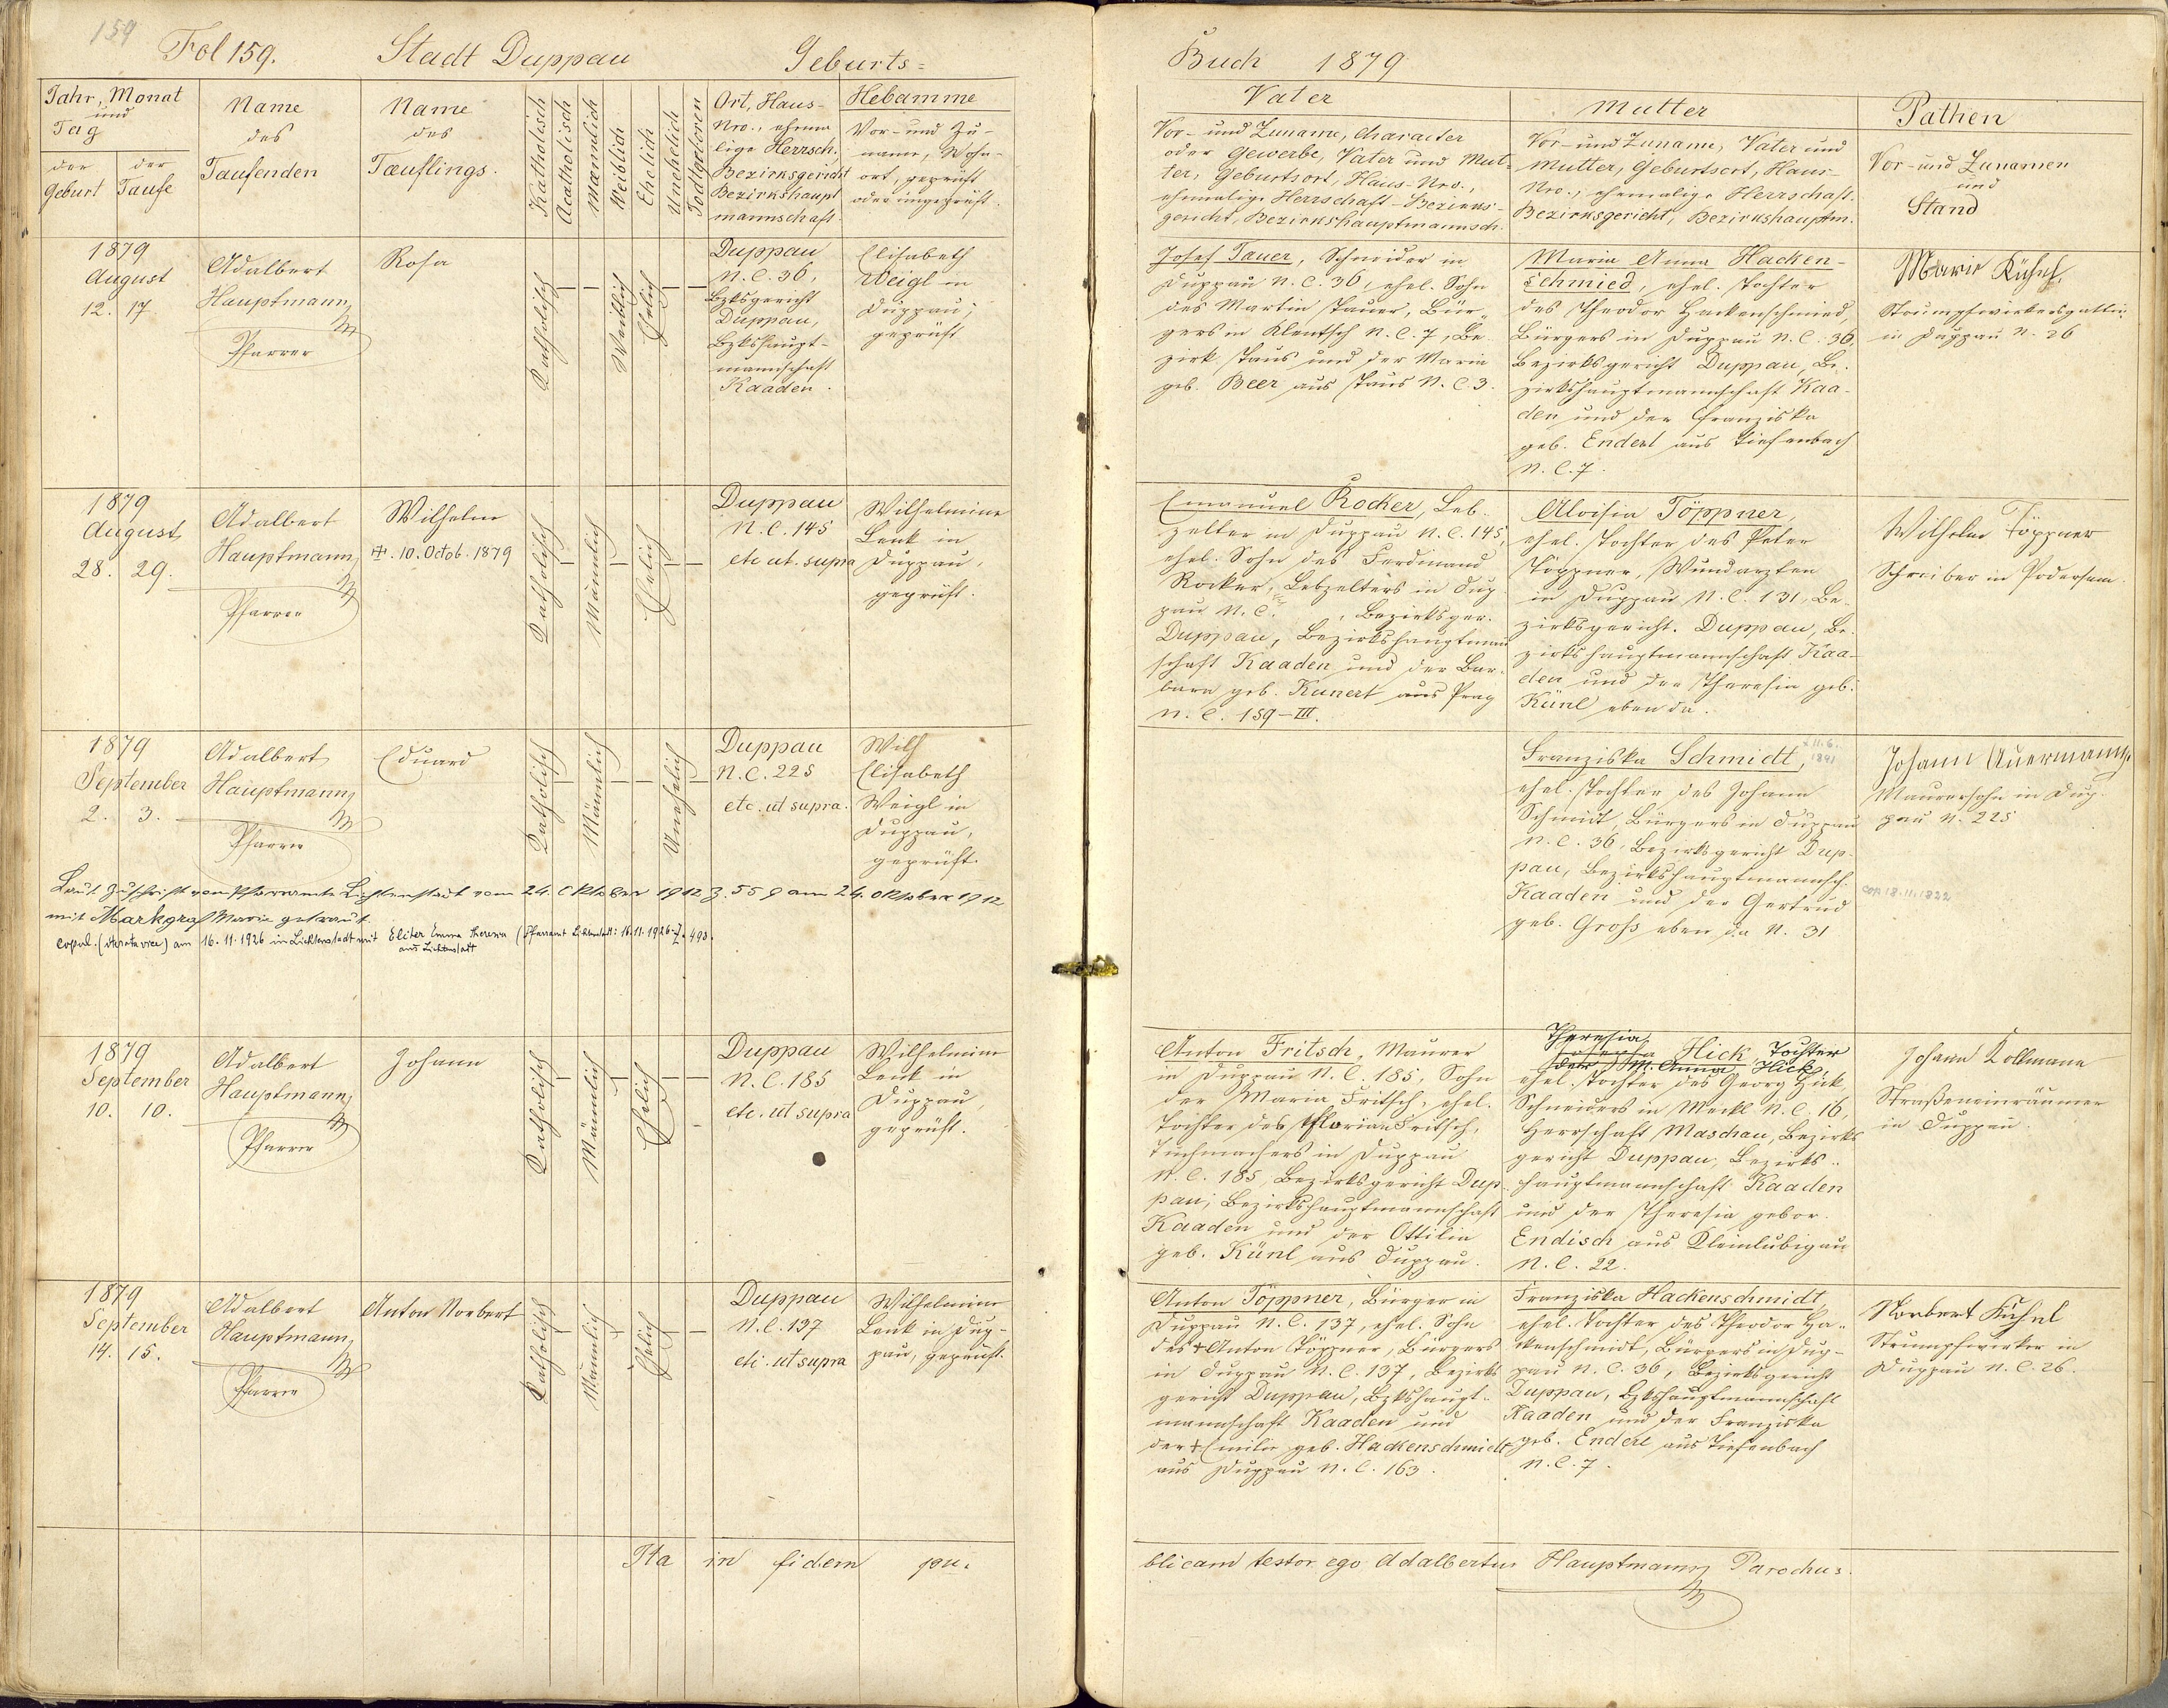 159
Fol 159. Stadt Duppau Geburts=
Jahr, Monat
und
Tag
der Geburt
der Taufe
Name
des
Taufenden
Name
des
Tæuflings.
Katholisch
Acatholisch
Mænnlich
Weiblich
Ehelich
Unehelich
Todtgeboren
Ort, Haus-
Nro., ehma
lige Herrsch.
Bezirksgericht
Bezirkshaupt
mannschaft.
Hebamme
Vor- und Zu-
name, Wohn-
ort, geprüft
oder ungeprüft.
1879
August
12. 17.
Adalbert
Hauptmann
Pfarrer
Rosa
Katholisch
Weiblich
Ehelich
Duppau
N.C. 36,
Bzksgericht
Duppau,
Bzkshaupt-
mannschaft
Kaaden.
Elisabeth
Weigl in
Duppau;
geprüft
1879
August
28. 29.
Adalbert
Hauptmann
Pfarrer
Wilhelm
†. 10. Octob. 1879
Katholisch
Männlich
Ehelich
Duppau
N.C. 145
etc ut. supra
Wilhelmine
Lenk in
Duppau,
geprüft.
1879
September
2. 3.
Adalbert
Hauptmann
Pfarrer
Eduard
Katholisch
Männlich
Unehelich
Duppau
N.C. 225
etc. ut supra.
Wilh
Elisabeth
Weigl in
Duppau,
geprüft.
Laut Zuschrift vom Pfarramte Lichtenstadt vom 24. Oktober 1912 Z. 559 am 24. Oktober 1912
mit Markgraf Marie getraut.
copul. (iterata vice) am 16.11.1926 in Lichtenstadt mit Eliter Emma Theresia (Pfarramt Lichtenstadt: 16.11.1926 Z. 493.
aus Lichtenstadt
1879
September
10. 10.
Adalbert
Hauptmann
Pfarrer
Johann
Katholisch
Männlich
Ehelich
Duppau
N.C. 185
etc. ut supra
Wilhelmine
Lenk in
Duppau,
geprüft.
1879
September
14. 15.
Adalbert
Hauptmann
Pfarrer
Anton Norbert
Katholisch
Männlich
Ehelich
Duppau
N.C. 137
etc. ut supra
Wilhelmine
Lenk in Dup-
pau, geprüft.
Ita in fidem pu-
Buch 1879
Vater
Vor- und Zuname, Character
oder Gewerbe, Vater und Mut-
ter, Geburtsort, Haus-Nro.,
ehmalige Herrschaft-Bezirks-
gericht, Bezirkshauptmannsch.
Mutter
Vor- und Zuname, Vater und
Mutter, Geburtsort, Haus-
Nro., ehemalige Herrschaft.
Bezirksgericht, Bezirkshauptm.
Pathen
Vor- und Zunamen
und
Stand
Josef Tauer, Schneider in
Duppau N.C. 36, ehel. Sohn
des Martin Tauer, Bür-
gers in Klentsch N.C. 7, Be-
zirk Taus und der Maria
geb. Beer aus Taus N.C. 3.
Maria Anna Hacken-
schmied, ehel. Tochter
des Theodor Hackenschmied,
Bürgers in Duppau N.C. 36,
Bezirksgericht Duppau, Be-
zirkshauptmannschaft Kaa-
den und der Franziska
geb. Enderl aus Tiefenbach
N.C. 7.
Marie Kühnl,
Strumpfwirkersgattin
in Duppau N. 26
Emanuel Rocker, Leb-
zelter in Duppau N.C. 145,
ehel. Sohn des Ferdinand
Rocker, Lebzelters in Dup-
pau N.C. , Bezirksger.
Duppau, Bezirkshauptmann
schaft Kaaden und der Bar-
bara geb. Kunert aus Prag
N.C. 159-III.
Aloisia Töppner,
ehel. Tochter des Peter
Töppner, Wundarzten
in Duppau N.C. 131, Be-
zirksgericht. Duppau, Be-
zirkshauptmannschaft Kaa-
den und der Theresia geb.
Künl eben da.
Wilhelm Töppner
Schreiber in Podersam.
Franziska Schmidt,
ehel. Tochter des Johann
Schmidt, Bürgers in Duppau
N.C. 36, Bezirksgericht Dup-
pau, Bezirkshauptmannsch.
Kaaden und der Gertrud
geb. Groß eben da N. 31
Johann Auermann,
Maurersohn in Dup-
pau N. 225
cop. 18.11.1822
Anton Fritsch, Maurer
in Duppau N.C. 185, Sohn
der Maria Fritsch, ehel.
Tochter des Florian Fritsch,
Tuchmachers in Duppau
N.C. 185, Bezirksgericht Dup-
pau, Bezirkshauptmannschaft
Kaaden und der Ottilia
geb. Künl aus Duppau.
Theresia
Josepha Hick, Tochter
der M. Anna Hick,
ehel. Tochter des Georg Hick,
Schneiders in Meckl N.C. 16,
Herrschaft Maschau, Bezirks
gericht Duppau, Bezirks-
hauptmannschaft Kaaden
und der Theresia gebor.
Endisch aus Kleinlubigau
N.C. 22.
Johann Kollmann
Straßeneinräumer
in Duppau.
Anton Töppner, Bürger in
Duppau N.C. 137, ehel. Sohn
des † Anton Töppner, Bürgers
in Duppau N.C. 137, Bezirks
gericht Duppau, Bzkshaupt-
mannschaft Kaaden und
der † Emilie geb. Hackenschmidt
aus Duppau N.C. 163.
Franziska Hackenschmidt,
ehel. Tochter des Theodor Ha-
ckenschmidt, Bürgers in Dup-
pau N.C. 36, Bezirksgericht
Duppau, Bzkshauptmannschaft
Kaaden und der Franziska
geb. Enderl aus Tiefenbach
N.C. 7.
Norbert Kühnl
Strumpfwirker in
Duppau N.C. 26.
blicam testor ego Adalbertus Hauptmann Parochus.